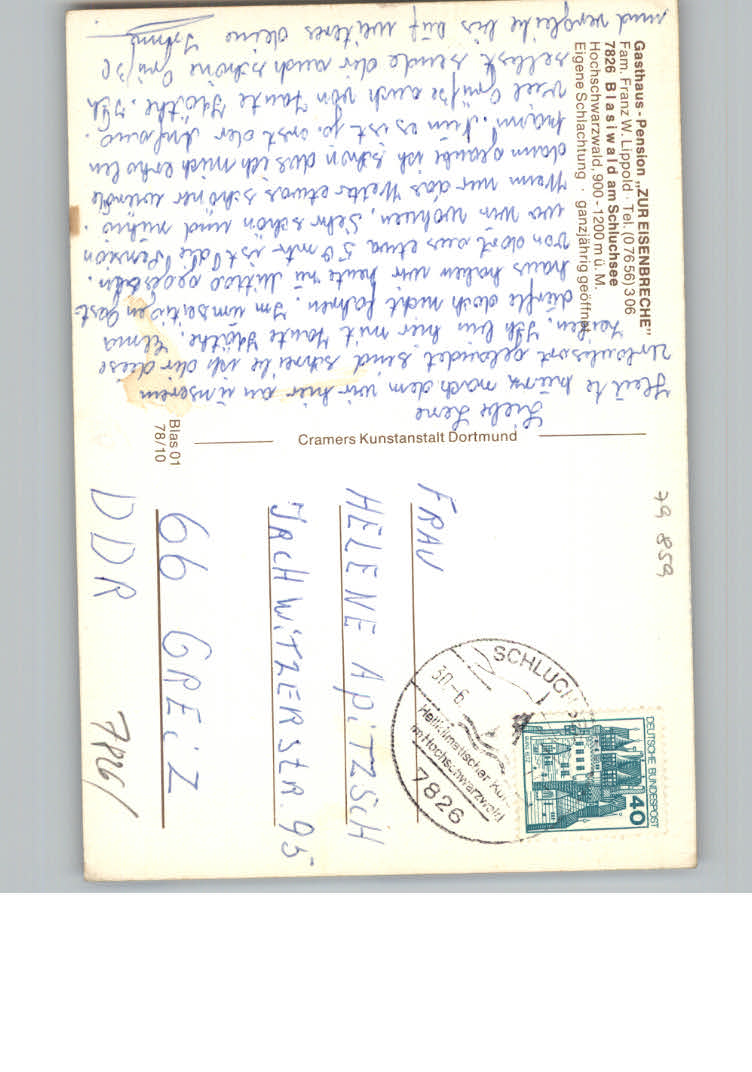 Gasthaus - Pension „ZUR EISENBRECHE"
Fam. Franz W. Lippold · Tel. (0 76 56) 3 06
7826 Blasiwald am Schluchsee
Hochschwarzwald, 900 - 1200 m ü. M.
Eigene Schlachtung · ganzjährig geöffnet
Liebe Lene
Heute nach dem wir hier an unserem
Urlaubsort gelandet sind schreibe ich dir diese
Zeilen. Ich bin hier mit Tante Käthe. Elma
dürfte doch nicht fahren. Im umseitigen Gast-
haus haben wir heute zu Mittag gegessen.
von dort aus etwa 50 mtr ist die Pension
wo wir wohnen, Sehr schön und ruhig.
Wenn nur das Wetter etwas schöner würde
dann glaube ich schon das ich mich erholen
kann. Nun es ist ja erst der Anfang.
Viel Grüße auch von Tante Käthe. Ich
selbst sende dir auch schöne Grüße
und verbleibe bis auf weiteres deine
Blas 01
78/10
Cramers Kunstanstalt Dortmund
FRAU
HELENE APiTZSCH
JACHWiTZERSTR. 95
66 GREiZ
DDR
7826/
79 859
SCHLUCHSEE
30.-6.
Heilklimatischer Kur
im Hochschwarzwald
7826
DEUTSCHE BUNDESPOST
40